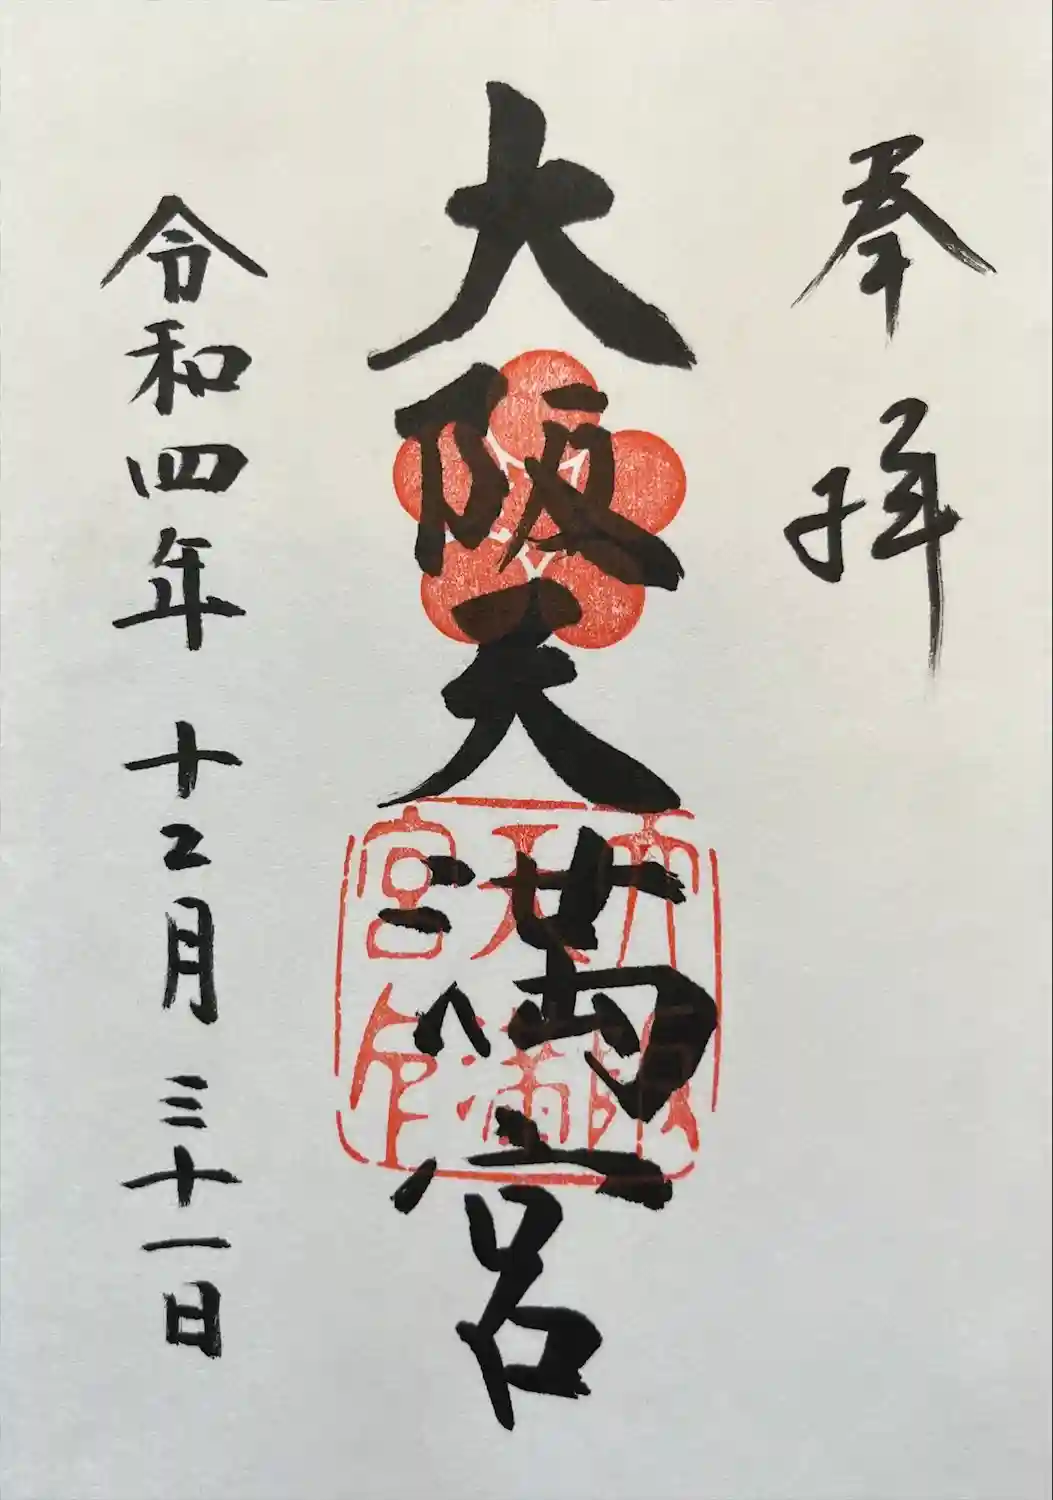 奉拝
大阪天満宮
大阪天満宮印
令和四年十二月三十一日